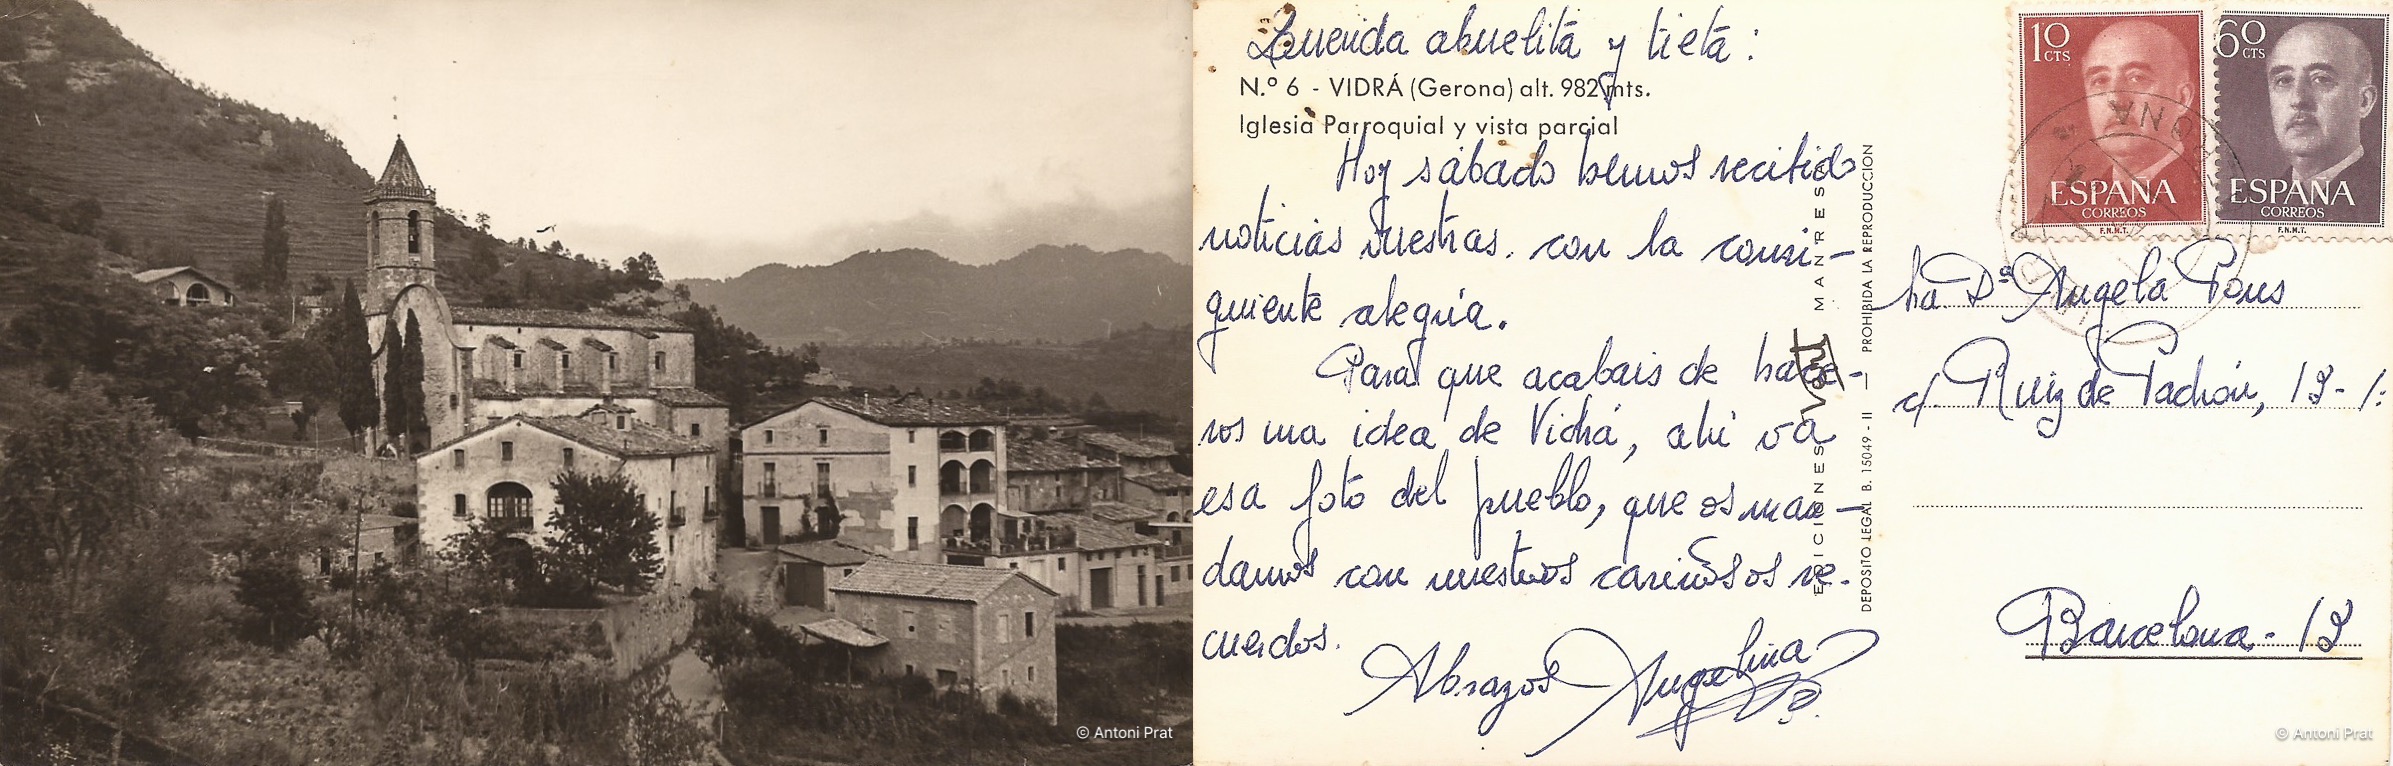 © Antoni Prat
Querida abuelita y tieta:
N.º 6 - VIDRÁ (Gerona) alt. 982 mts.
Iglesia Parroquial y vista parcial
Hoy sábado hemos recibido
noticias vuestras, con la consi-
guiente alegría.
Para que acabais de hace-
ros una idea de Vidrá, ahí va
esa foto del pueblo, que os man-
damos con nuestros cariñosos re-
cuerdos.
Abrazos Angelina
EDICIONES MANRESA
DEPOSITO LEGAL B. 15049 - II — PROHIBIDA LA REPRODUCCION
10 CTS
ESPAÑA
CORREOS
F.N.M.T.
60 CTS
ESPAÑA
CORREOS
F.N.M.T.
Dª Angela Pons
c/. Ruiz de Padrón, 13-1º
Barcelona - 13
© Antoni Prat